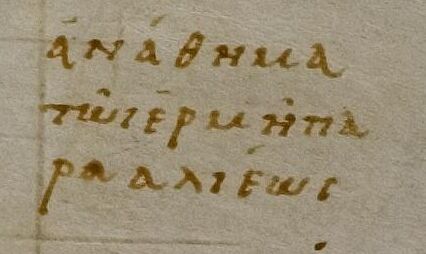 ἀνάθημα
τῶι ἑρμῆ πα
ρα αλιέως